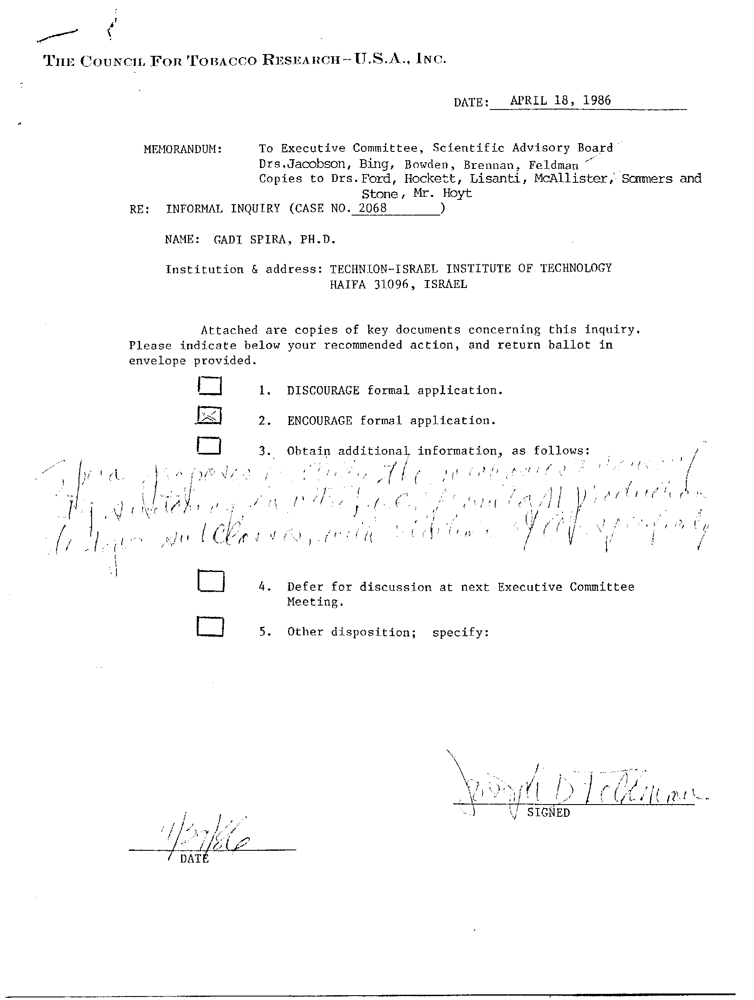 THE COUNCIL FOR TOBACCO RESEARCH-U.S.A., INC.
DATE: APRIL 18, 1986
MEMORANDUM: To Executive Committee, Scientific Advisory Board
Drs.Jacobson, Bing, Bowden, Brennan, Feldman
Copies to Drs.Ford, Hockett, Lisanti, McAllister, Sommers and
Stone, Mr. Hoyt
RE: INFORMAL INQUIRY (CASE NO. 2068 )
NAME: GADI SPIRA, PH.D.
Institution & address: TECHNION-ISRAEL INSTITUTE OF TECHNOLOGY
HAIFA 31096, ISRAEL
Attached are copies of key documents concerning this inquiry.
Please indicate below your recommended action, and return ballot in
envelope provided.
1. DISCOURAGE formal application.
2. ENCOURAGE formal application.
3. Obtain additional information, as follows:
Spira proposes to study the
Ig switching in vitro, i.e. from IgM production
to Ig subclasses, with
4. Defer for discussion at next Executive Committee
Meeting.
5. Other disposition; specify:
Joseph D Feldman
SIGNED
DATE